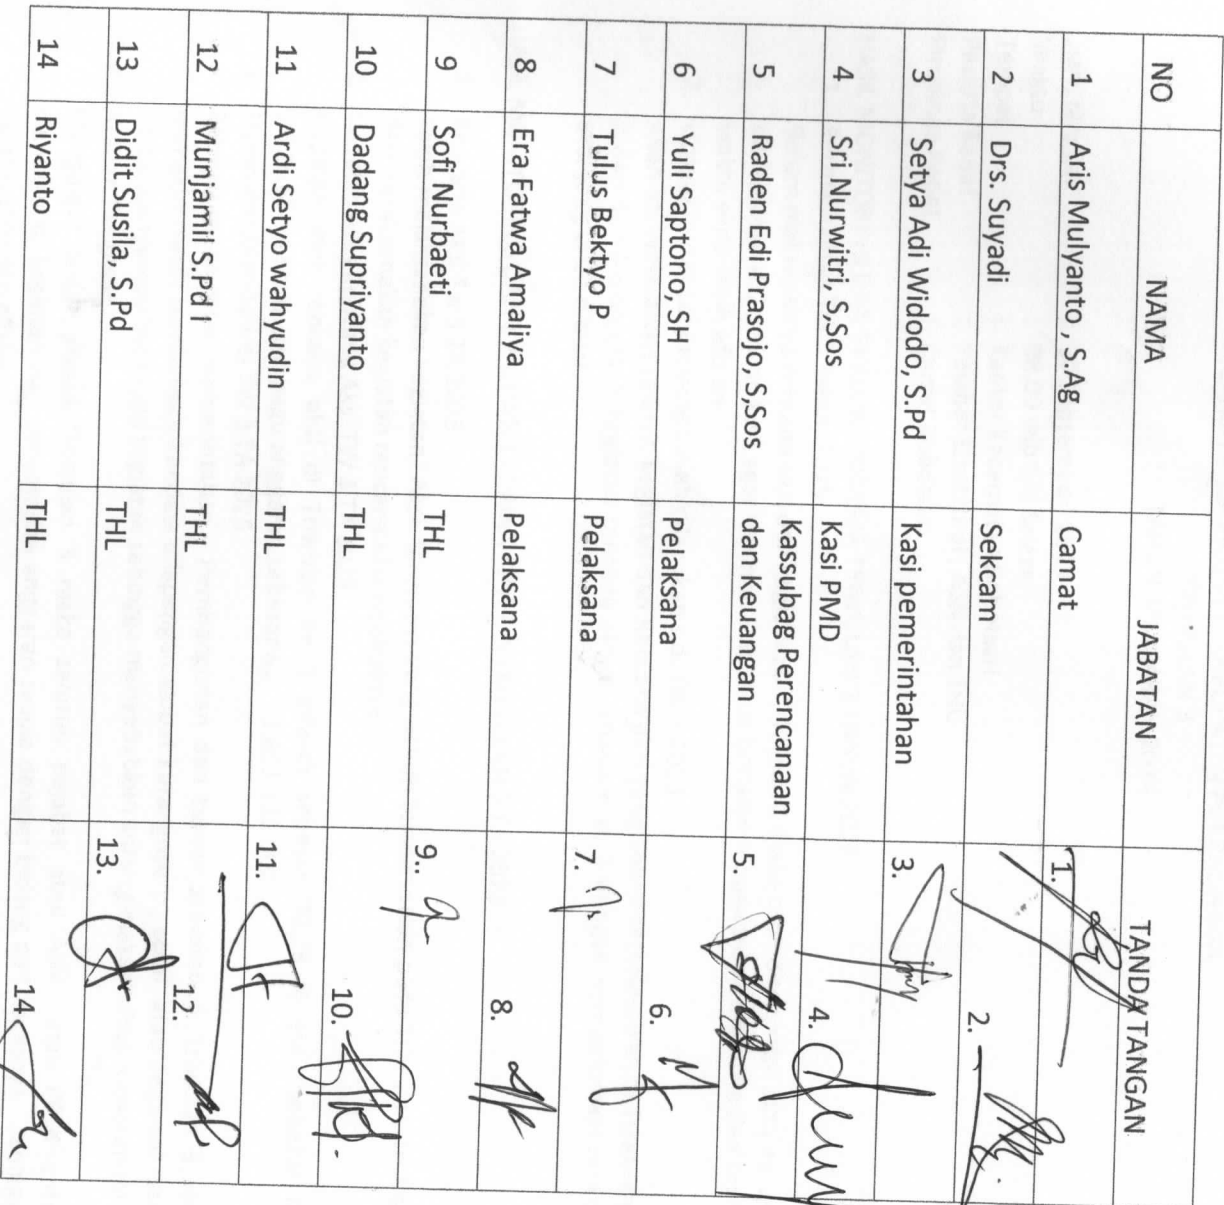 NO NAMA JABATAN TANDA TANGAN
1 Aris Mulyanto , S.Ag Camat 1.
2 Drs. Suyadi Sekcam 2.
3 Setya Adi Widodo, S.Pd Kasi pemerintahan 3.
4 Sri Nurwitri, S,Sos Kasi PMD 4.
5 Raden Edi Prasojo, S,Sos Kassubag Perencanaan
dan Keuangan 5.
6 Yuli Saptono, SH Pelaksana 6.
7 Tulus Bektyo P Pelaksana 7.
8 Era Fatwa Amaliya Pelaksana 8.
9 Sofi Nurbaeti THL 9.
10 Dadang Supriyanto THL 10.
11 Ardi Setyo wahyudin THL 11.
12 Munjamil S.Pd I THL 12.
13 Didit Susila, S.Pd THL 13.
14 Riyanto THL 14.